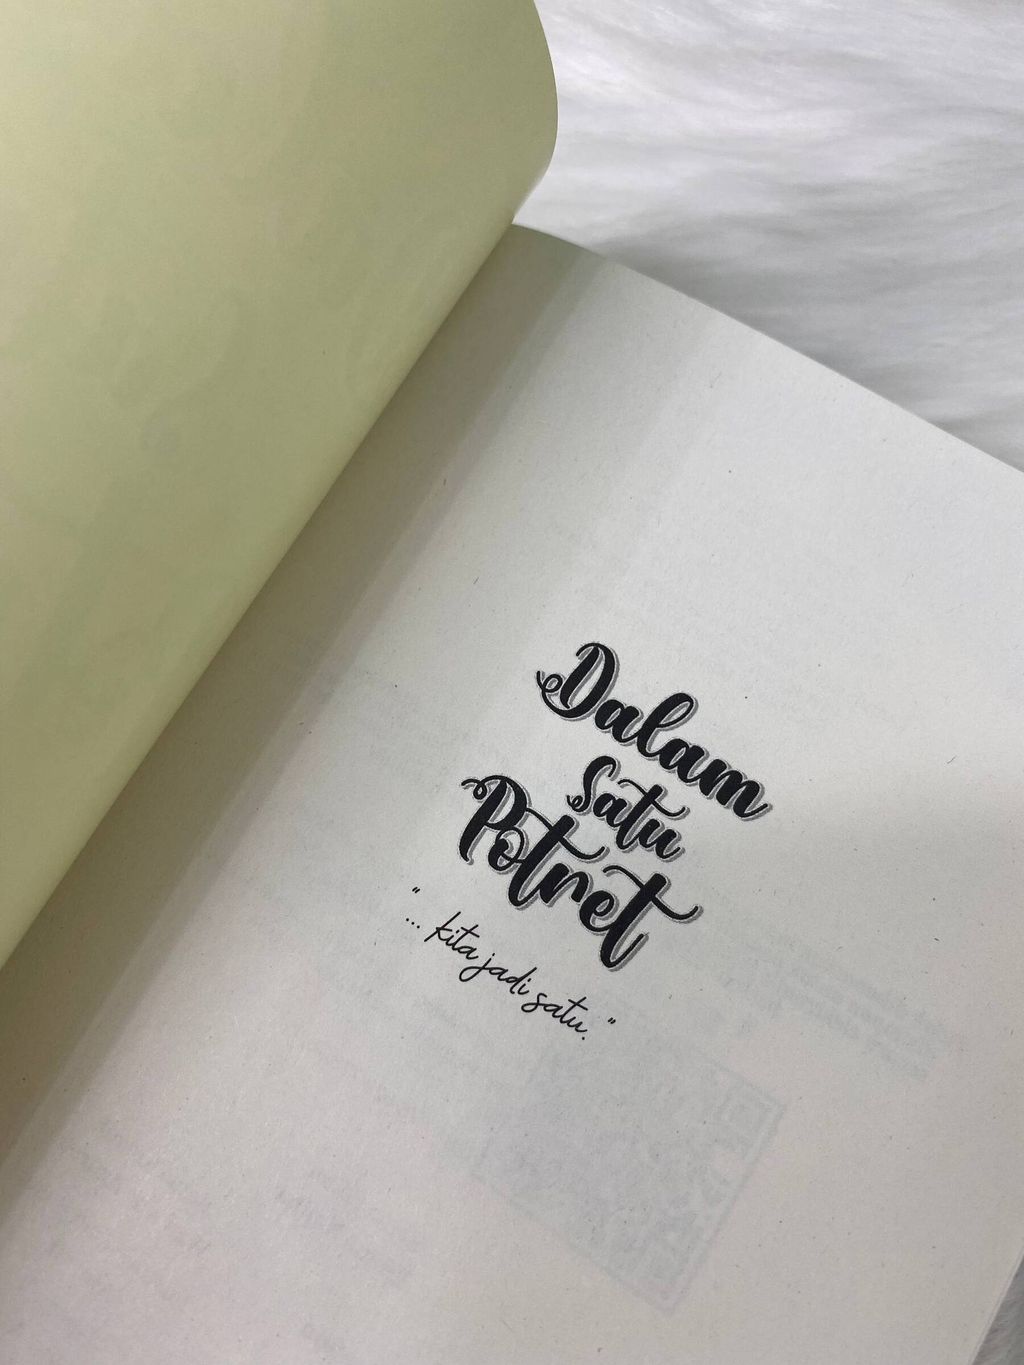 Dalam
Satu
Potret
"... kita jadi satu."